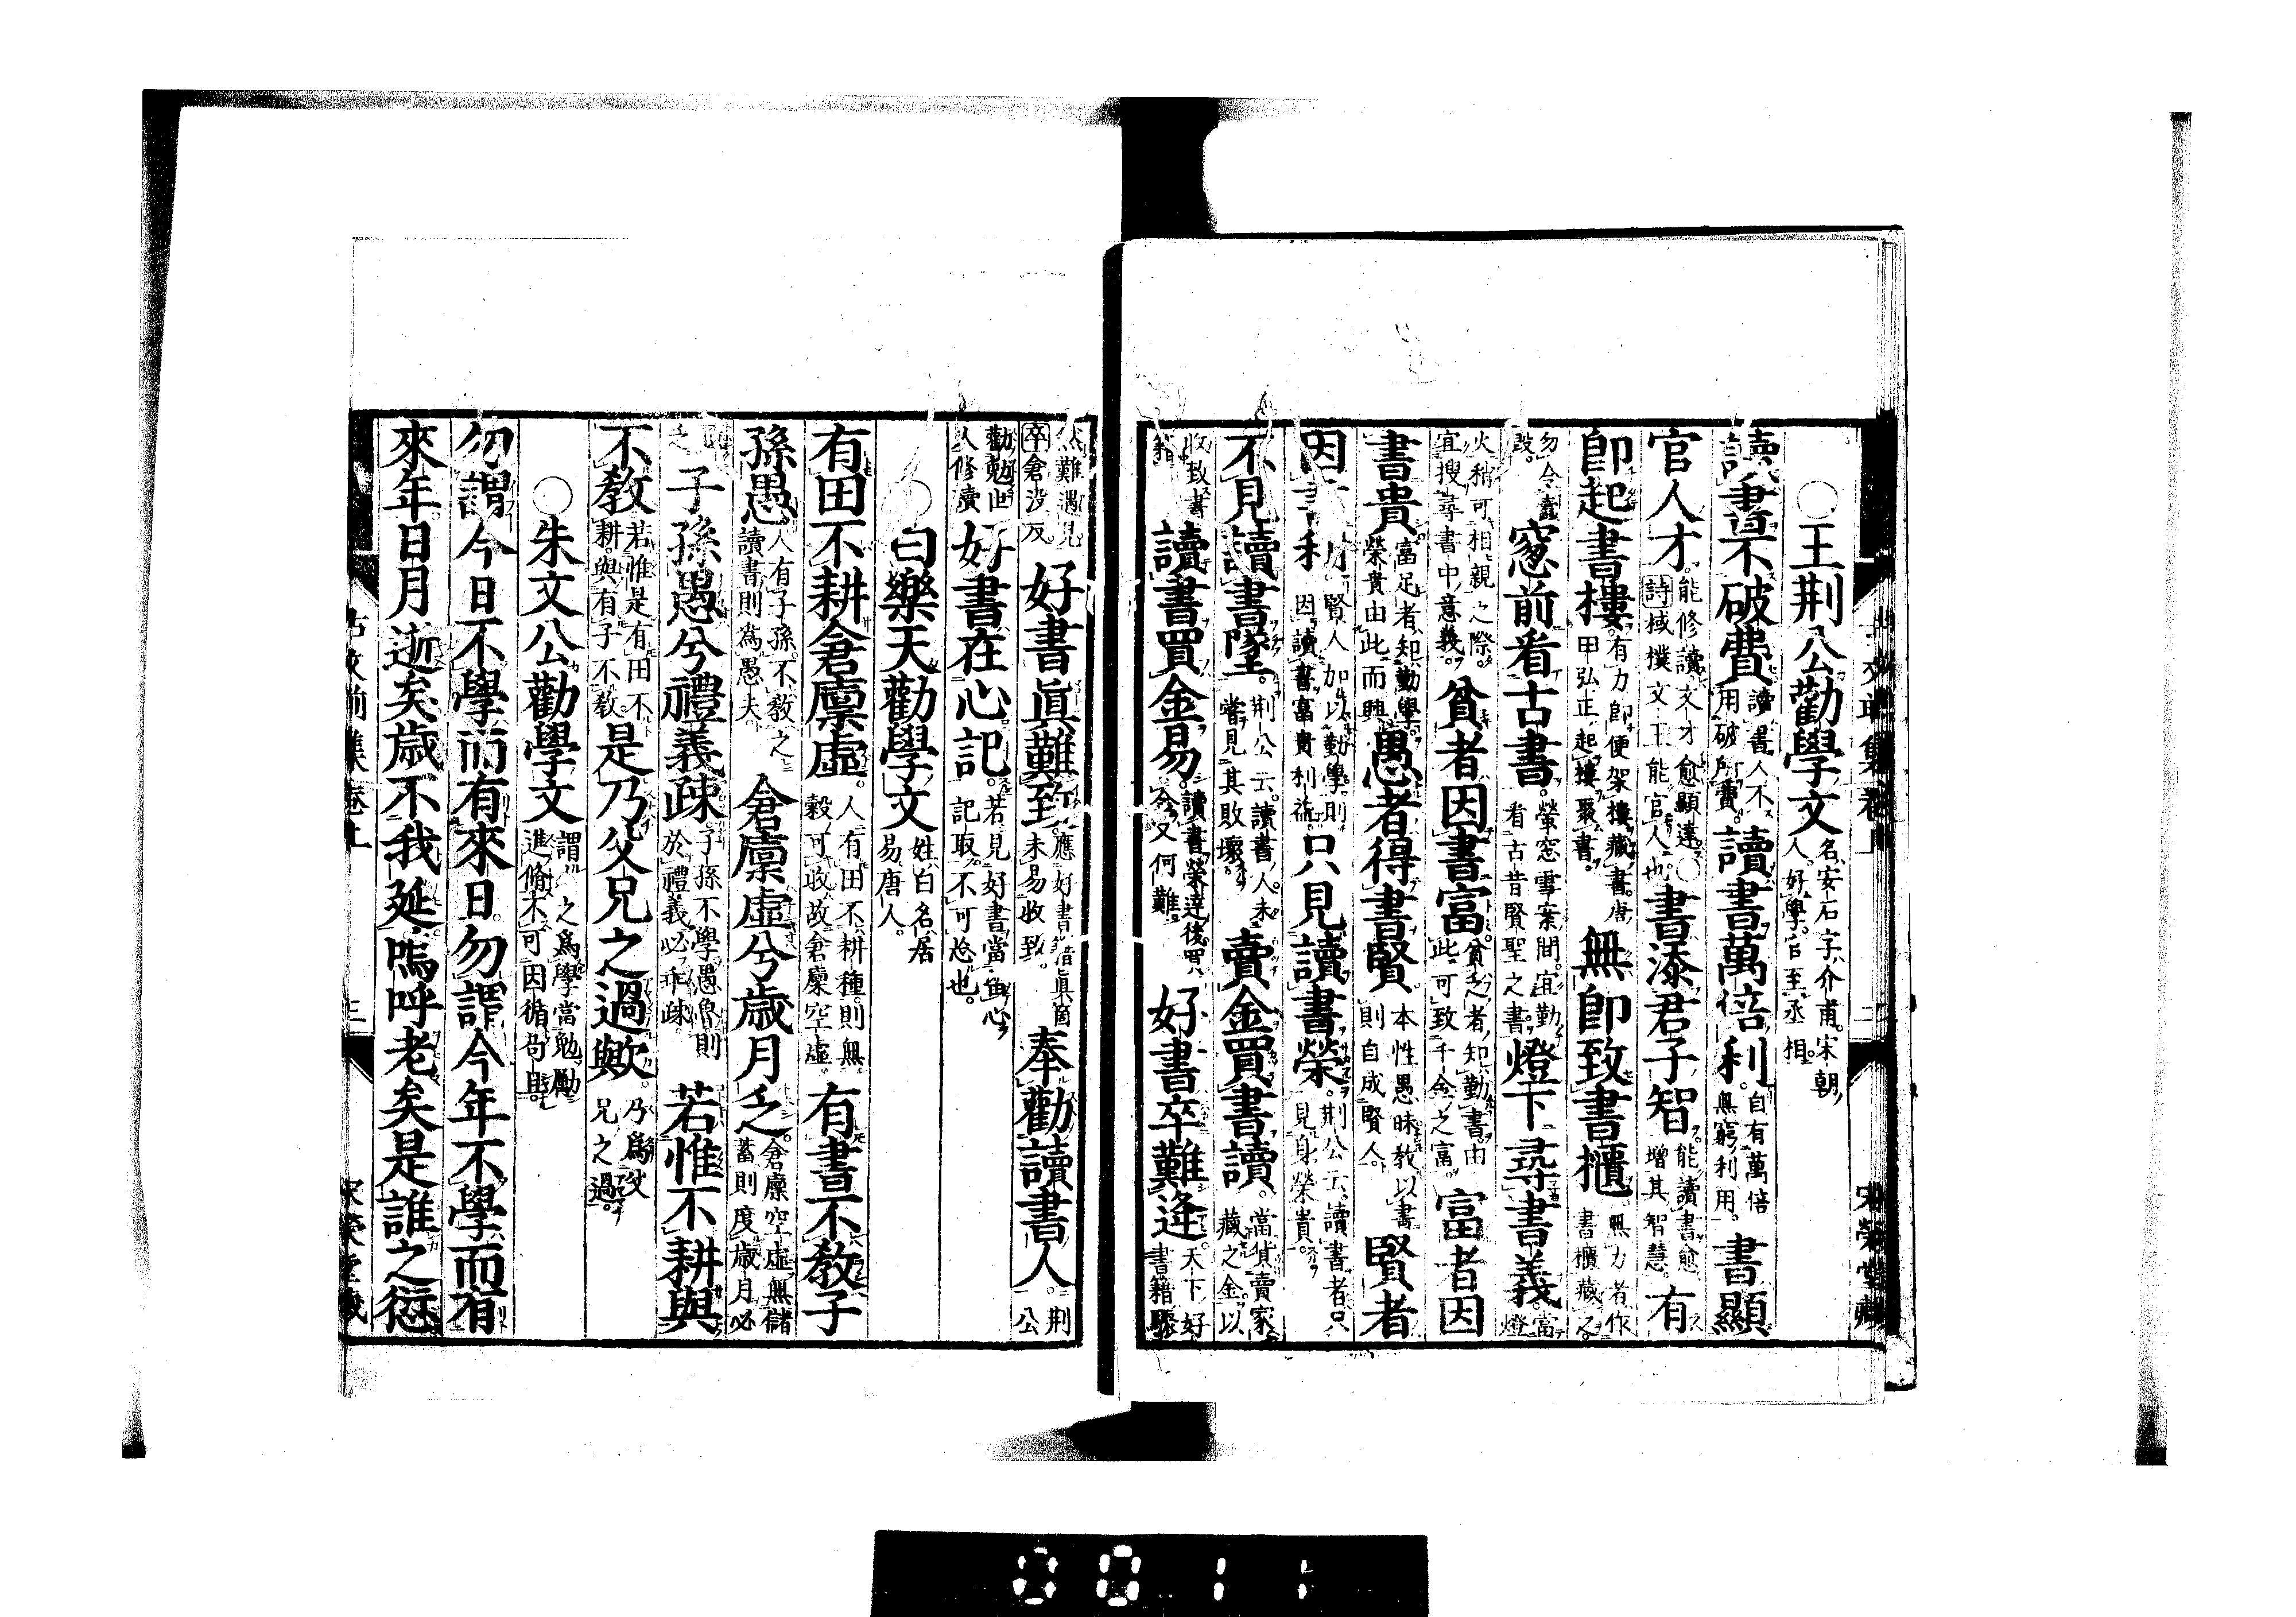 ○王荊公勸學文 名安石字介甫。宋朝人。好學官至丞相。
讀書不破費 讀書人不用破所費。 讀書萬倍利。 自有萬倍無窮利用。 書顯
官人才 能修讀文才愈顯達○詩棫樸文王能官人也 書添君子智 能讀書愈增其智慧。 有
卽起書樓 有力卽便架樓藏書。唐田弘正起樓聚書。 無卽致書櫃 無力者作書櫃藏之
勿令蠹毀。 窓前看古書。 螢窓雪案間。宜勤看古昔賢聖之書。 燈下尋書義。 當燈
火稍可相親之際。宜搜尋書中意義。 貧者因書富。 貧乏者知勤書。由此可致千金之富。 富者因
書貴 富足者知勤學。榮貴由此而興 愚者得書賢 本性愚昧教以書則自成賢人。 賢者
因書利 賢人加以勤學。則因讀書富貴利益。 只見讀書榮。 荊公云。讀書者只見身榮貴。
不見讀書墜。 荊公云。讀書人。未嘗見其敗壞。 賣金買書讀。 當貨賣家藏之金。以
收致書籍 讀書買金易。 讀書榮達後買金又何難。 好書卒難逢。 天下好書籍驟
然難遇見卒倉没反 好書眞難致。 應好書籍眞箇未易收致。 奉勸讀書人。 荊公
勸勉世人修讀 好書在心記。 若見好書當〓心記取。不可忘也。
○白樂天勸學文 姓白名居易。唐人。
有田不耕倉廩虛。 人有田不耕種。則無穀可收。故倉廩空虛。 有書不教子
孫愚 人有子孫。不教之讀書則為愚夫。 倉廩虛兮歲月乏。 倉廩空虛無儲蓄則度歲月必
乏 子孫愚兮禮義疎 子孫不學愚魯則於禮義必乖疎 若惟不耕與
不教 若惟是有田不耕。與有子不教 是乃父兄之過歟。 乃爲父兄之過。
○朱文公勸學文 謂人之爲學當勉勵進脩不可因循苟且。
勿謂今日不學而有來日。勿謂今年不學而有
來年日月逝矣歲不我延。嗚呼老矣是誰之愆
古文前集卷上 二 宋榮堂藏
古文前集卷上 三 宋榮堂藏
0011